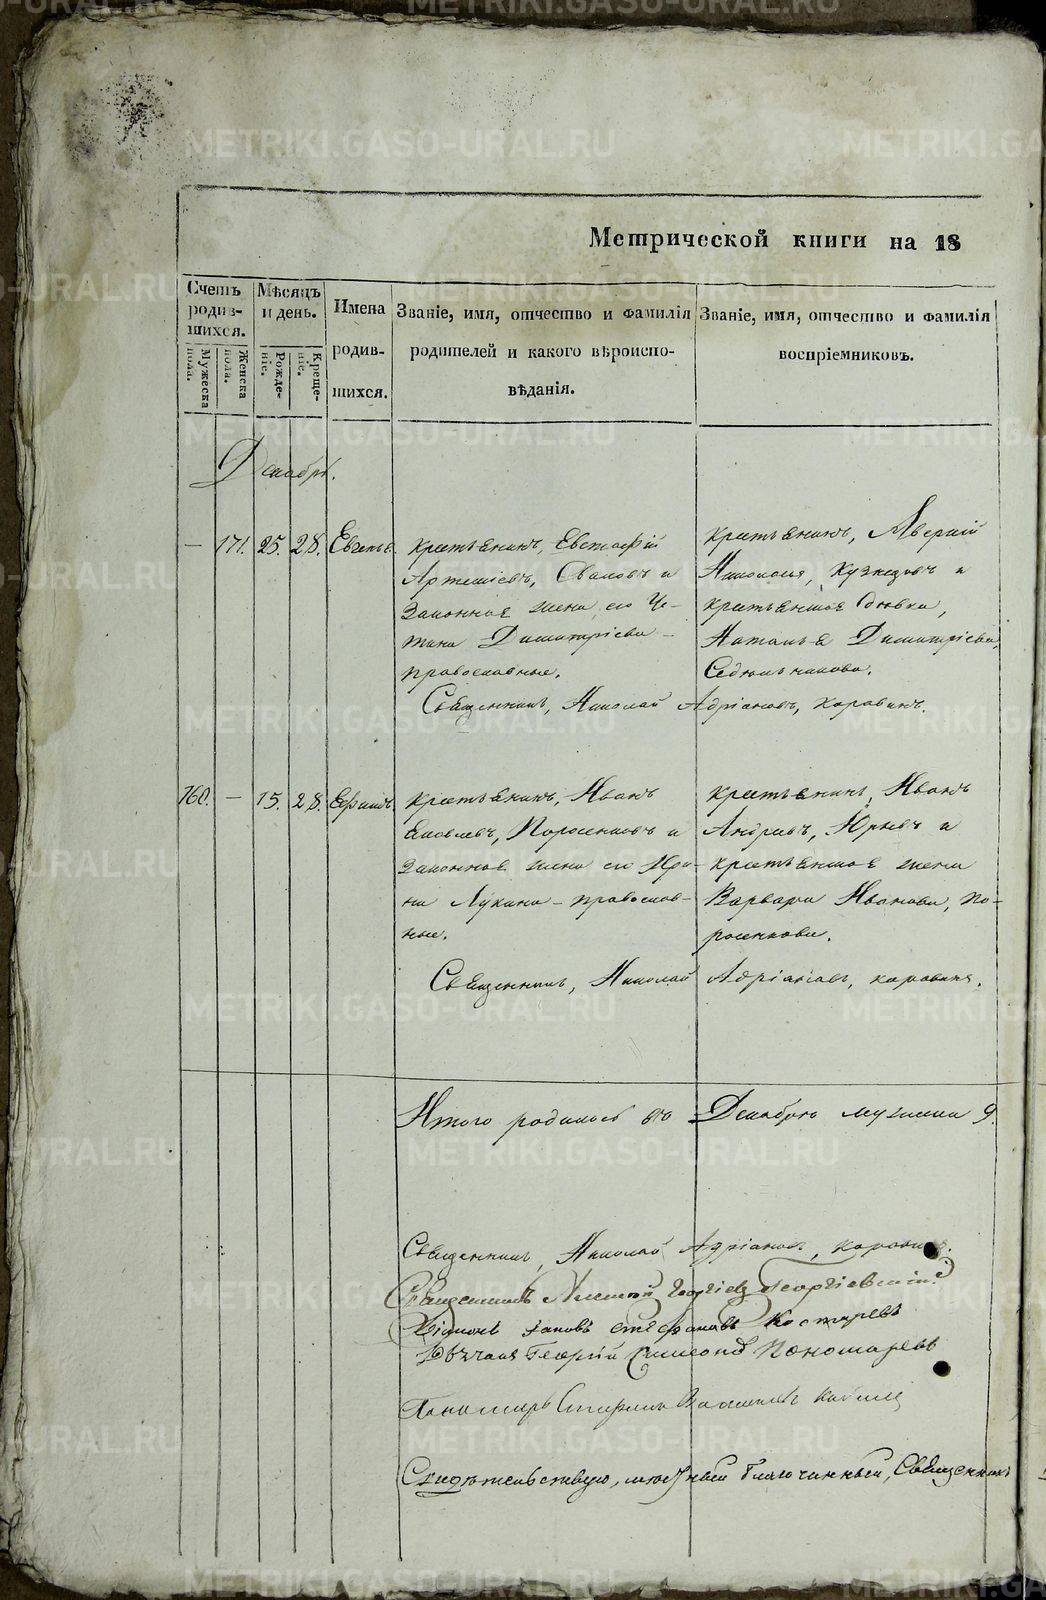 Метрической книги на 18
Счетъ родив-шихся.
Мужеска пола.
Женска пола.
Мѣсяцъ и день.
Рожде-ніе.
Креще-ніе.
Имена
родив-
шихся.
Званіе, имя, отчество и фамилія
родителей и какого вѣроиспо-
вѣданія.
Званіе, имя, отчество и фамилія
воспріемниковъ.
Декабрь.
— 171. 25. 28. Евгенія
крестьянинъ, Евстафій
Артеміевъ, и
законная жена его Те-
тіана Димитріева —
православные.
крестьянинъ, Аверкій
Николаевъ, Кузнецовъ и
крестьянская дѣвка,
Наталья Димитріева,
Священникъ, Николай Адріановъ, Коровинъ.
160. — 15. 28. Ефимъ
крестьянинъ, Иванъ
Яковлевъ, Поросенковъ и
законная жена его Ири-
на Лукина — православ-
ные.
крестьянинъ, Иванъ
Андреевъ, Юрьевъ и
крестьянская жена
Варвара Иванова, По-
росенкова.
Священникъ, Николай Адріановъ, Коровинъ.
Итого родилось въ Декабрѣ мужеска 9.
Священникъ, Николай Адріановъ, Коровинъ.
Священникъ Алексѣй Георгіевъ Георгіевскій.
Діаконъ Іаковъ Стефановъ Костаревъ
Дьячекъ Георгій Симеоновъ Пономаревъ
Пономарь
Свидѣтельствую, мѣстный благочинный, Священникъ
METRIKI.GASO-URAL.RU